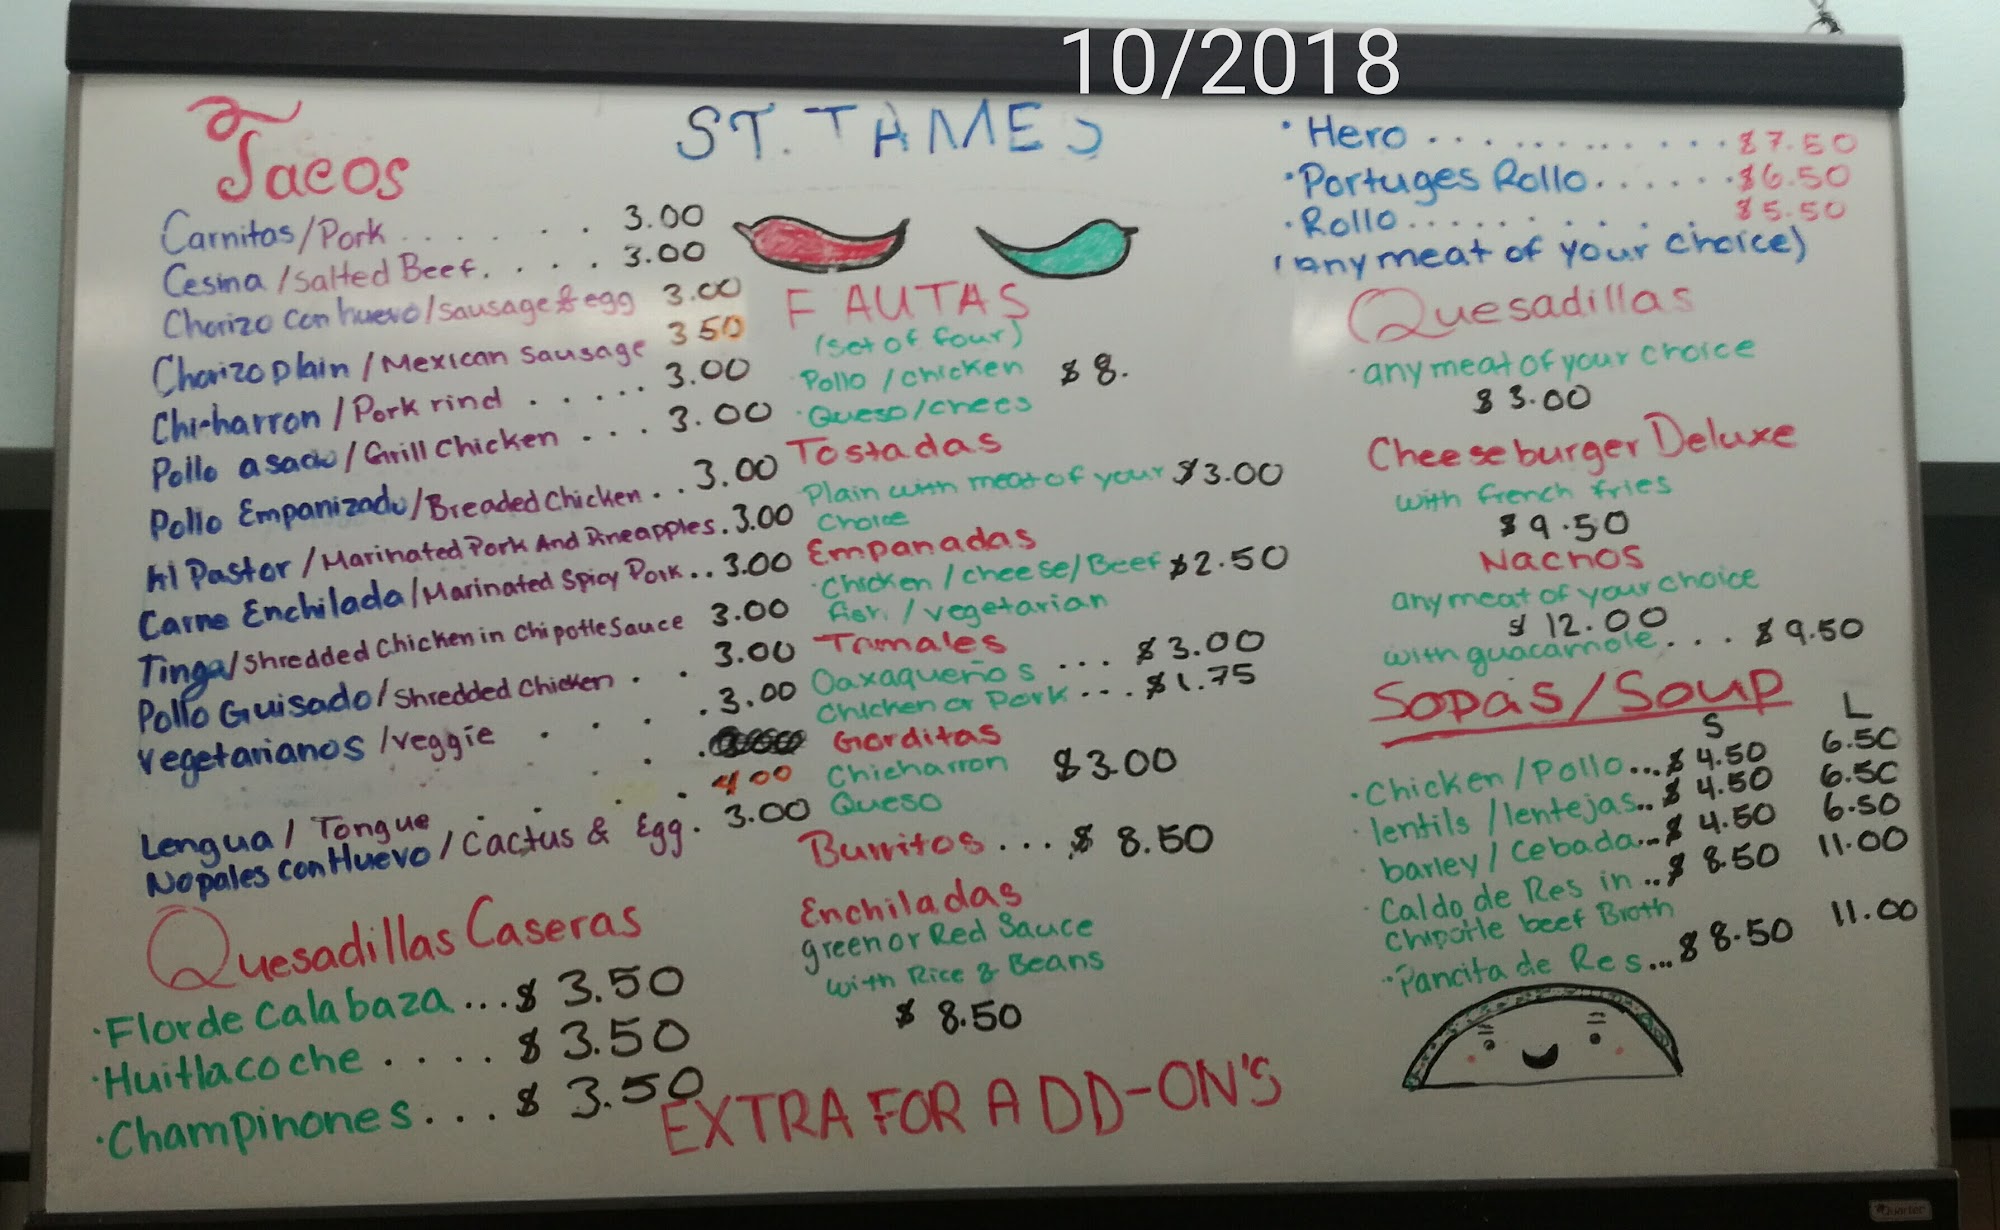 10/2018
ST. TAMES
Tacos
Carnitas/Pork . . . . . . 3.00
Cesina/Salted Beef. . . . 3.00
Chorizo con huevo/sausage & egg 3.00
Chorizo plain/Mexican sausage 3 50
Chicharron/Pork rind . . . . . 3.00
Pollo asado/Grill Chicken . . . 3.00
Pollo Empanizado/Breaded Chicken . . 3.00
Al Pastor/Marinated Pork And Pineapples . 3.00
Carne Enchilada/Marinated Spicy Pork .. 3.00
Tinga/Shredded Chicken in Chipotle Sauce 3.00
Pollo Guisado/Shredded Chicken . . 3.00
Vegetarianos/veggie . . . . 3.00
Lengua/Tongue . . . . 4 00
Nopales con Huevo/Cactus & Egg. 3.00
Quesadillas Caseras
· Flor de Calabaza ... $ 3.50
· Huitlacoche . . . . $ 3.50
· Champinones . . . $ 3.50
F AUTAS
(set of four)
Pollo/chicken $ 8.
· Queso/chees
Tostadas
Plain with meat of your $3.00
Choice
Empanadas
· Chicken/cheese/Beef $2.50
fish/vegetarian
Tamales
Oaxaqueños ... $3.00
Chicken or Pork ... $1.75
Gorditas
Chicharron $3.00
Queso
Burritos ... $ 8.50
Enchiladas
green or Red Sauce
with Rice & Beans
$ 8.50
EXTRA FOR ADD-ON'S
· Hero . . . . . . . . . . . $7.50
· Portuges Rollo. . . . . . $6.50
· Rollo . . . . . . . . $5.50
(any meat of your choice)
Quesadillas
· any meat of your choice
$ 3.00
Cheeseburger Deluxe
with french fries
$ 9.50
Nachos
any meat of your choice
$ 12.00
with guacamole . . . $ 9.50
Sopas/Soup
S L
· Chicken/Pollo ... $ 4.50 6.50
· lentils/lentejas .. $ 4.50 6.50
· barley/Cebada ... $ 4.50 6.50
· Caldo de Res in .. $ 8.50 11.00
Chipotle beef Broth
· Pancita de Res ... $ 8.50 11.00
Quartet